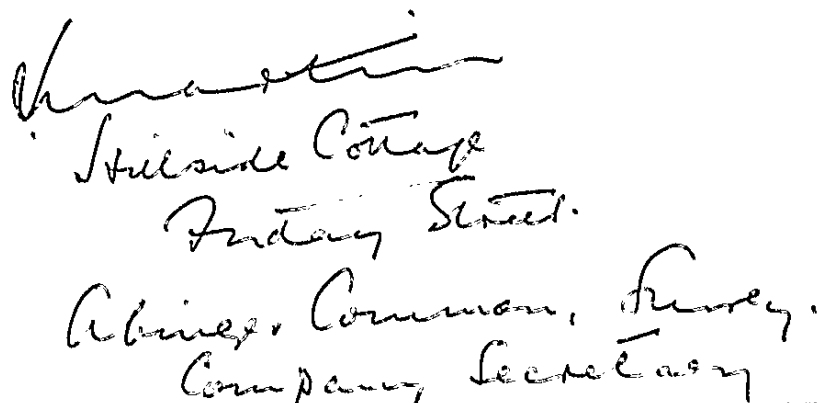 Hillside Cottage
Friday Street.
Abinger Common, Surrey.
Company Secretary